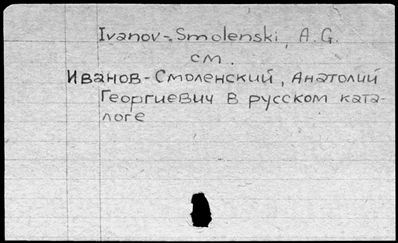 Ivanov-Smolenski, A.G.
см.
Иванов-Смоленский, Анатолий
Георгиевич в русском ката-
логе